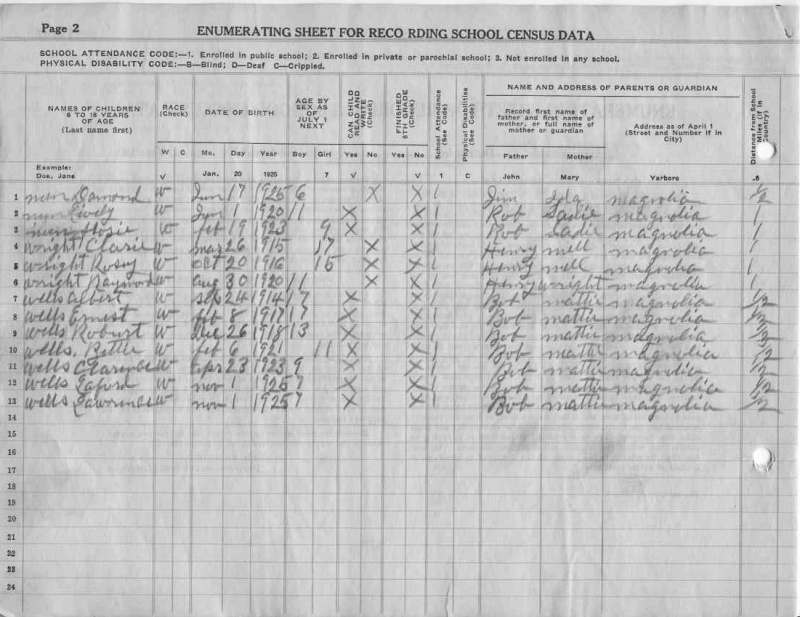 Page 2 ENUMERATING SHEET FOR RECO RDING SCHOOL CENSUS DATA
SCHOOL ATTENDANCE CODE:—1. Enrolled in public school; 2. Enrolled in private or parochial school; 3. Not enrolled in any school.
PHYSICAL DISABILITY CODE:—B—Blind; D—Deaf C—Crippled.
NAMES OF CHILDREN 6 TO 18 YEARS OF AGE (Last name first)
RACE (Check)
W C
DATE OF BIRTH
Mo. Day Year
AGE BY SEX AS OF JULY 1 NEXT
Boy Girl
CAN CHILD READ AND WRITE (Check)
Yes No
FINISHED 8TH GRADE (Check)
Yes No
School Attendance (See Code)
Physical Disabilities (See Code)
NAME AND ADDRESS OF PARENTS OR GUARDIAN
Record first name of father and first name of mother, or full name of mother or guardian
Father Mother
Address as of April 1 (Street and Number if in City)
Distance from School Miles (If in Country)
Example:
Doe, Jane V Jan. 20 1925 7 V V 1 C John Mary Yarboro .6
1 Damond W Jun 17 1925 6 X X 1 Jim magnolia 1/2
2 W 1 1920 11 X X 1 Rob Sadie magnolia 1
3 W feb 19 1923 9 X X 1 Rob Sadie magnolia 1
4 wright Clasie W mar 26 1915 17 X X 1 Henry mell magnolia 1
5 wright Rosey W oct 20 1916 15 X X 1 Henry mell magnolia 1
6 wright Raymond W aug 30 1920 11 X X 1 Henry wright magnolia 1
7 wells albert W sep 24 1914 17 X X 1 Bob mattie magnolia 1/2
8 wells Ernest W feb 8 1917 17 X X 1 Bob mattie magnolia 1/2
9 wells Robert W Dec 26 1918 13 X X 1 Bob mattie magnolia
10 wells, W feb 6 1921 11 X X 1 Bob mattie magnolia 1/2
11 wells Clarence W apr 23 1923 9 X X 1 Bob mattie magnolia
12 wells W nov 1 1925 7 X X 1 Bob mattie magnolia 1/2
13 wells Lawrence W nov 1 1925 7 X X 1 Bob mattie magnolia 1/2
14
15
16
17
18
19
20
21
22
23
24